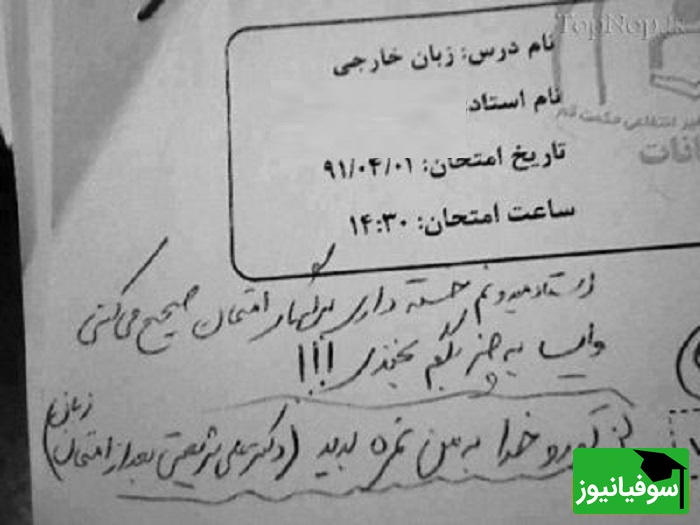 TopNop.ir
نام درس: زبان خارجی
نام استاد:
تاریخ امتحان: ۹۱/۰۴/۰۱
ساعت امتحان: ۱۴:۳۰
غیر انتفاعی حکمت قم
استاد میدونم خسته داری امتحان صحیح می‌کنی
وایسا یه چیز بگم بخندی!!!
تو رو خدا به من نمره بدید (دکتر علی شریعتی بعد از امتحان زبان)
سوفیانیوز